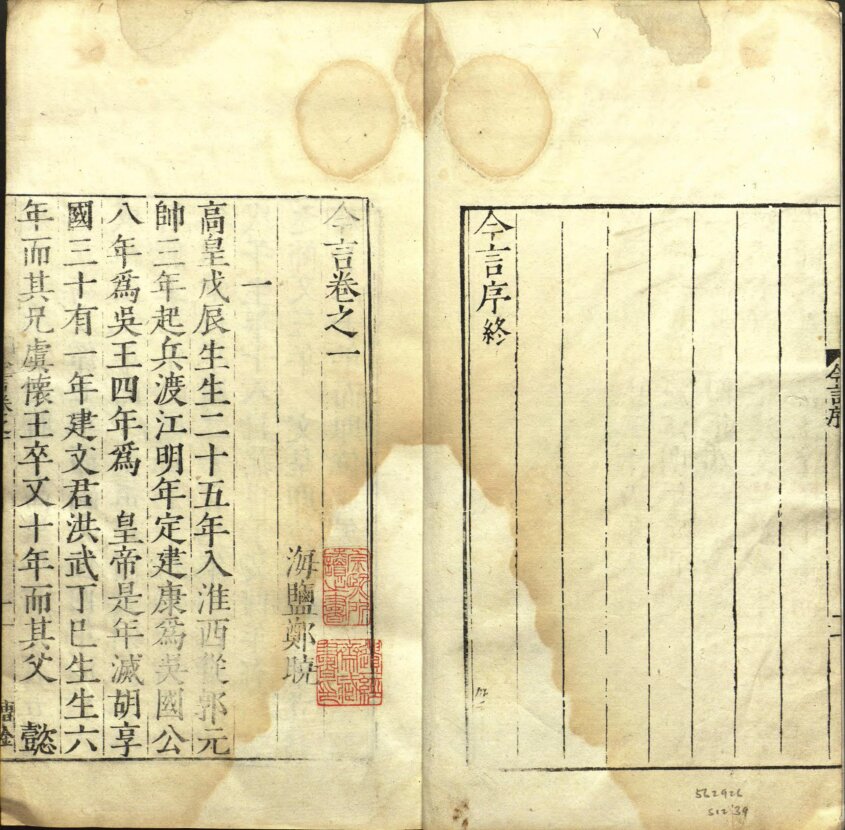 今言序
二
今言序終
562926
S12 '39
今言卷之一
海鹽鄭曉
一
高皇戊辰生生二十五年入淮西從郭元
帥三年起兵渡江明年定建康為吳國公
八年爲吳王四年爲 皇帝是年滅胡享
國三十有一年建文君洪武丁巳生生六
年而其兄虞懷王卒又十年而其父 懿
今言卷之一